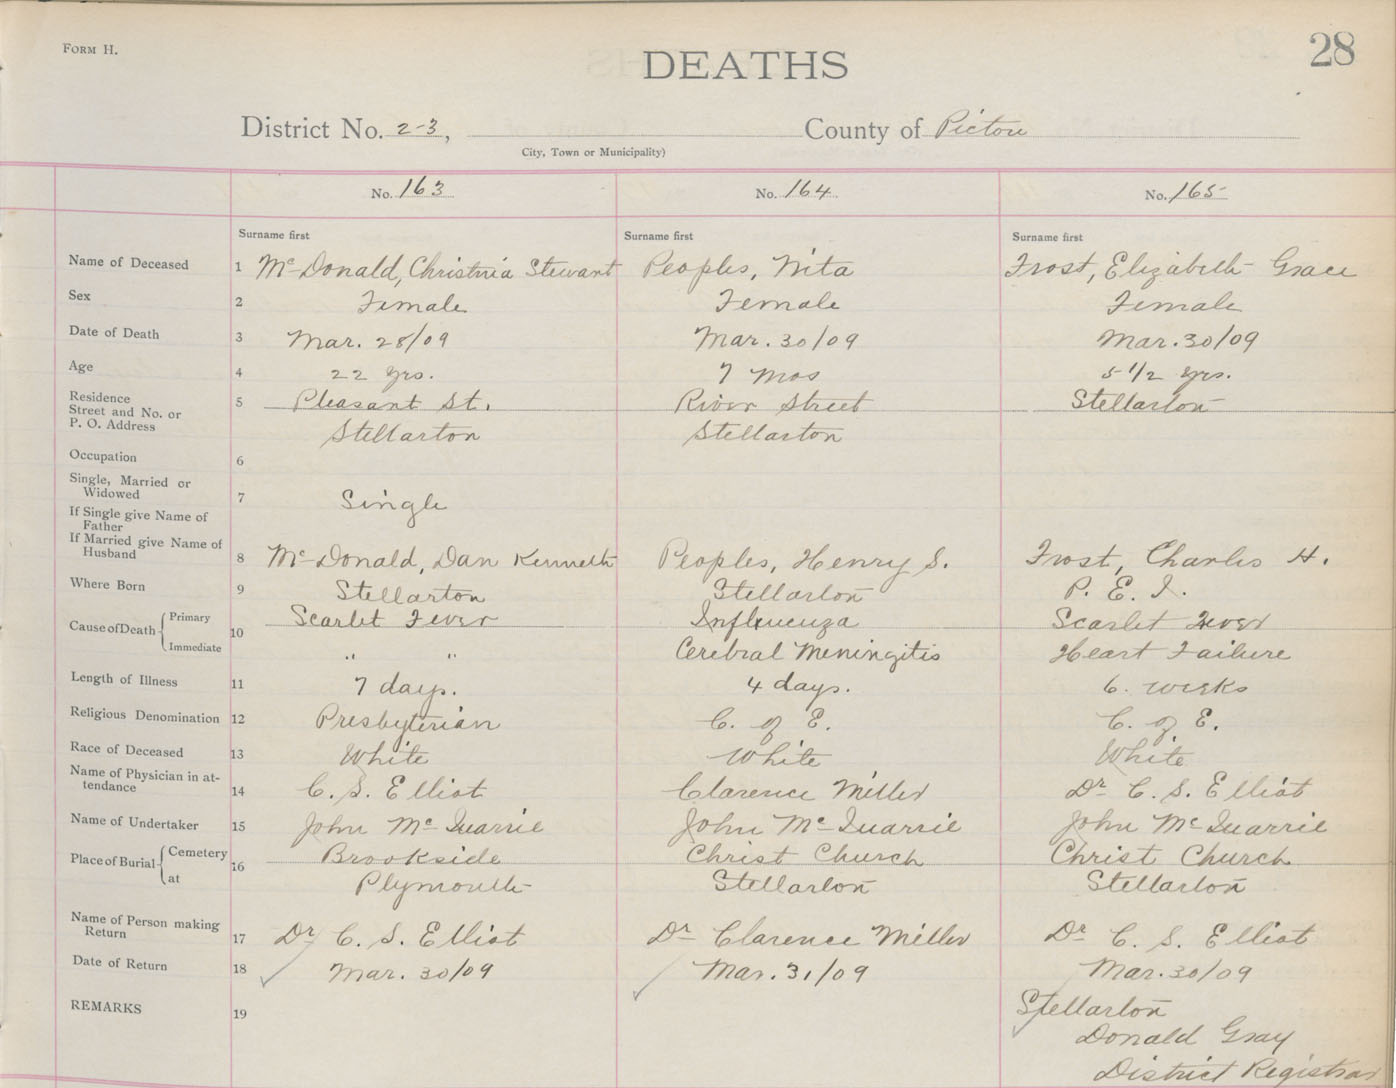 FORM H.
DEATHS
28
District No. 2-3, County of Pictou
City, Town or Municipality)
No. 163 No. 164 No. 165
Surname first Surname first Surname first
Name of Deceased 1 McDonald, Christina Stewart Peoples, Nita Frost, Elizabeth Grace
Sex 2 Female Female Female
Date of Death 3 Mar. 28/09 Mar. 30/09 Mar. 30/09
Age 4 22 yrs. 7 mos 5 1/2 yrs.
Residence
Street and No. or 5 Pleasant St. River Street Stellarton
P. O. Address Stellarton Stellarton
Occupation 6
Single, Married or
Widowed 7 Single
If Single give Name of
Father
If Married give Name of
Husband 8 McDonald, Dan Kenneth Peoples, Henry S. Frost, Charles H.
Where Born 9 Stellarton Stellarton P. E. I.
Cause of Death Primary 10 Scarlet Fever Influenza Scarlet Fever
Immediate " " Cerebral Meningitis Heart Failure
Length of Illness 11 7 days. 4 days. 6. weeks
Religious Denomination 12 Presbyterian C. of E. C. of E.
Race of Deceased 13 White White White
Name of Physician in at-
tendance 14 C. S. Elliot Clarence Miller Dr C. S. Elliot
Name of Undertaker 15 John McQuarrie John McQuarrie John McQuarrie
Place of Burial Cemetery 16 Brookside Christ Church Christ Church
at Plymouth Stellarton Stellarton
Name of Person making
Return 17 Dr C. S. Elliot Dr Clarence Miller Dr C. S. Elliot
Date of Return 18 Mar. 30/09 Mar. 31/09 Mar. 30/09
REMARKS 19 Stellarton
Donald Gray
District Registrar